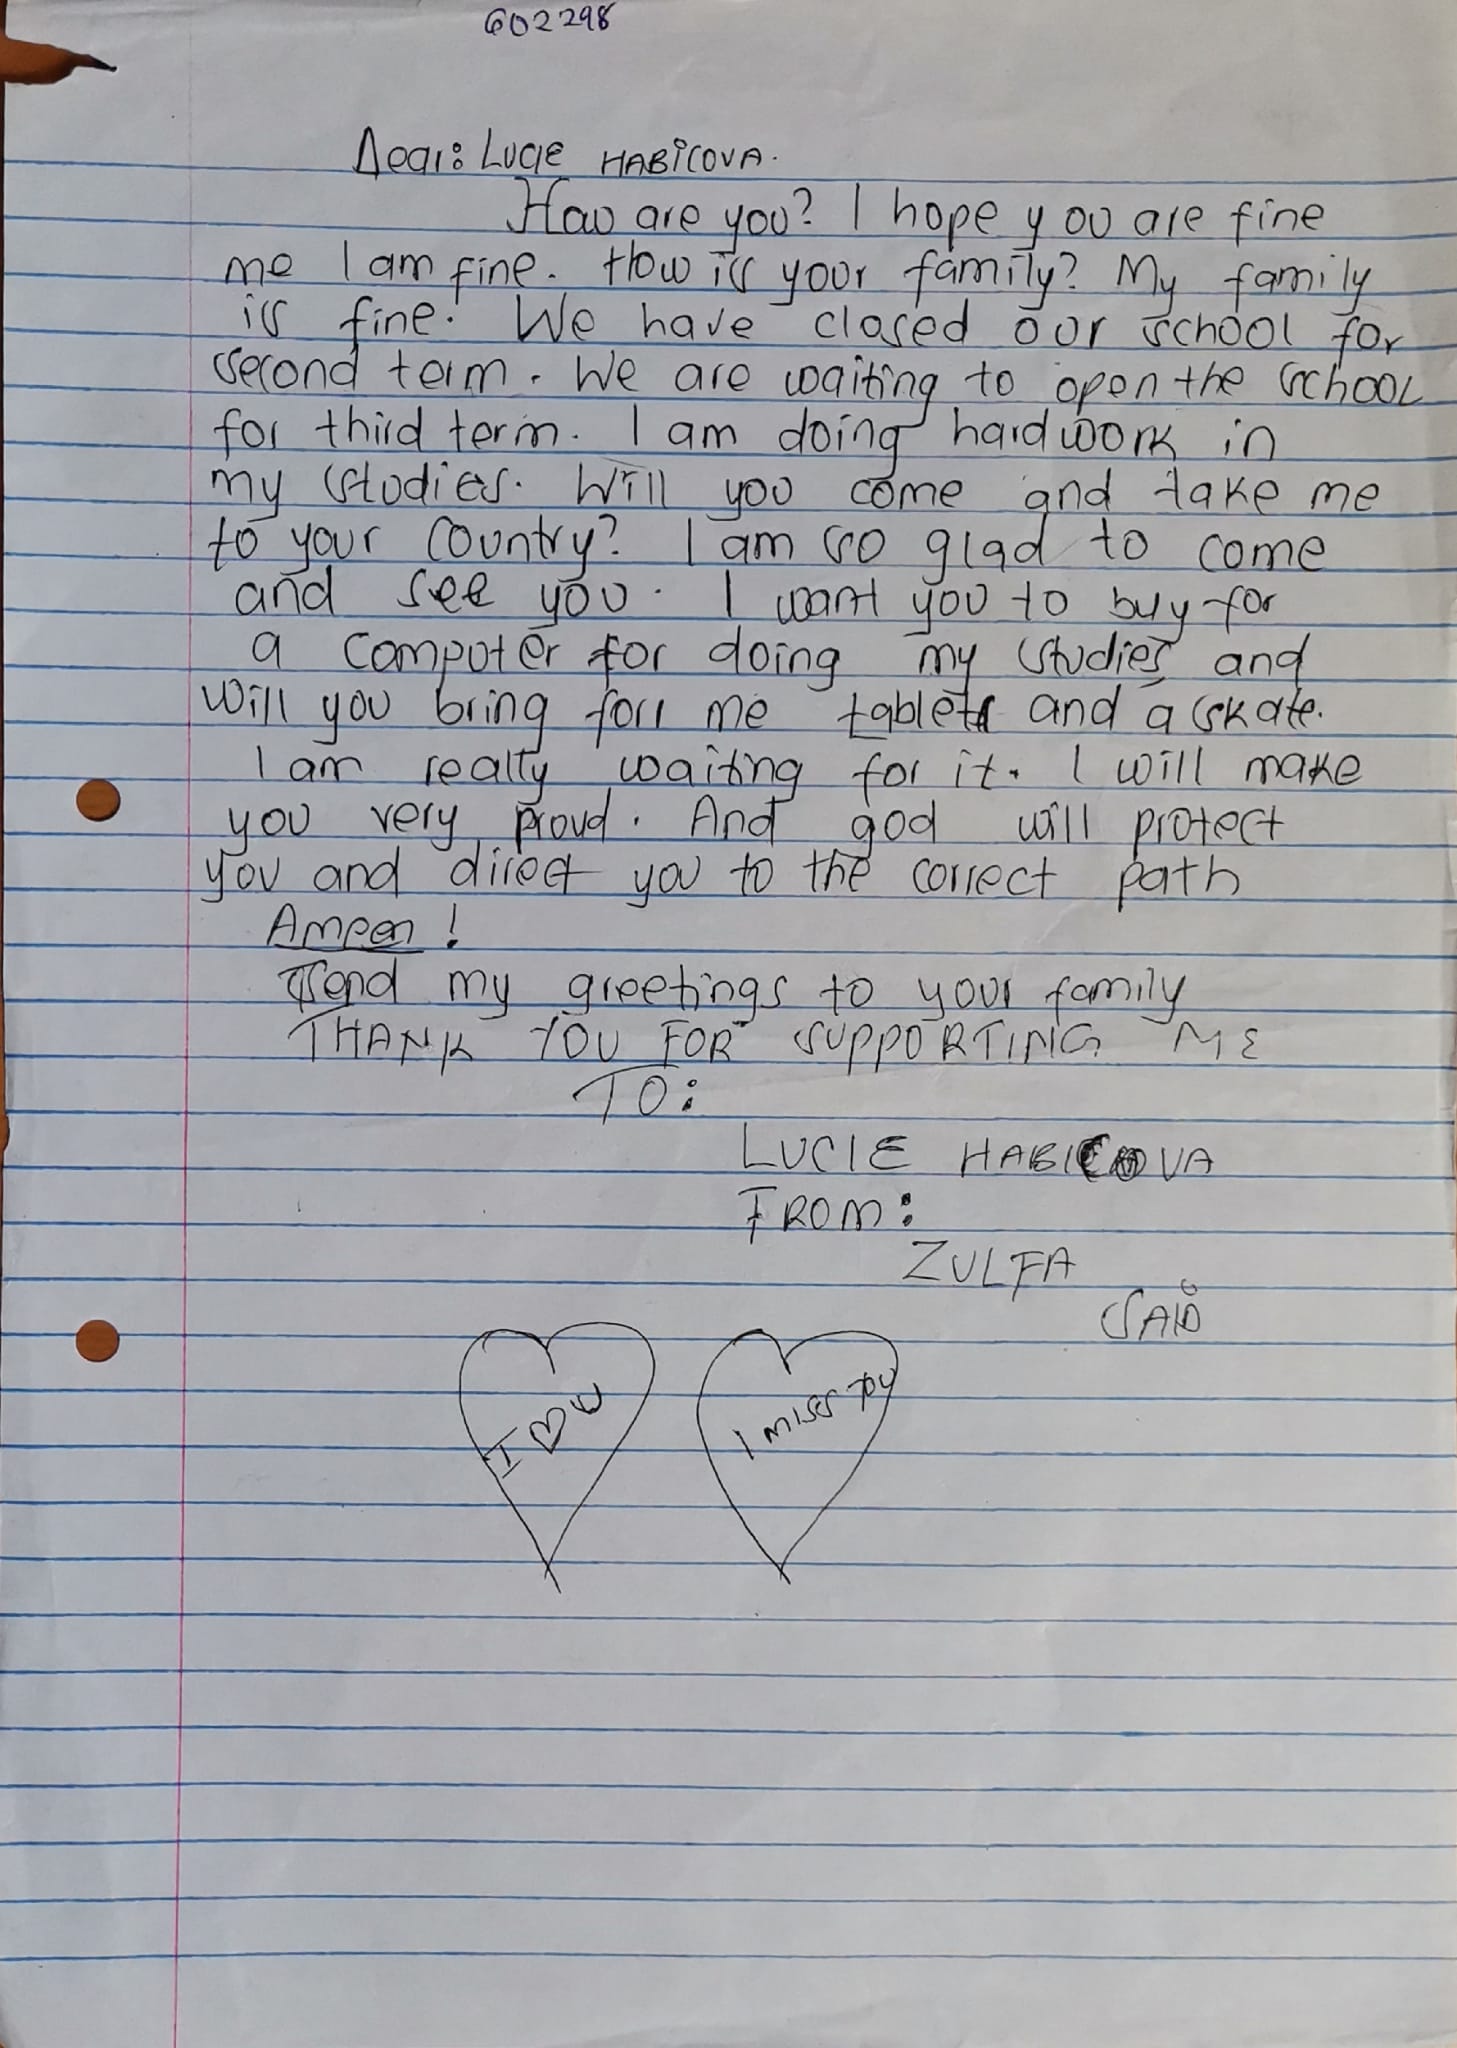 602298
Dear: Lucie HABICOVA.
How are you? I hope you are fine
me I am fine. How is your family? My family
is fine. We have closed our school for
second term. We are waiting to open the school
for third term. I am doing hardwork in
my studies. Will you come and take me
to your country? I am so glad to come
and see you. I want you to buy for
a computer for doing my studies and
will you bring for me tablet and a skate.
I am really waiting for it. I will make
you very proud. And god will protect
you and direct you to the correct path
Ameen!
Send my greetings to your family
THANK YOU FOR SUPPORTING ME
TO:
LUCIE HABICOVA
FROM:
ZULFA
SAID
I ♡ U
I miss you